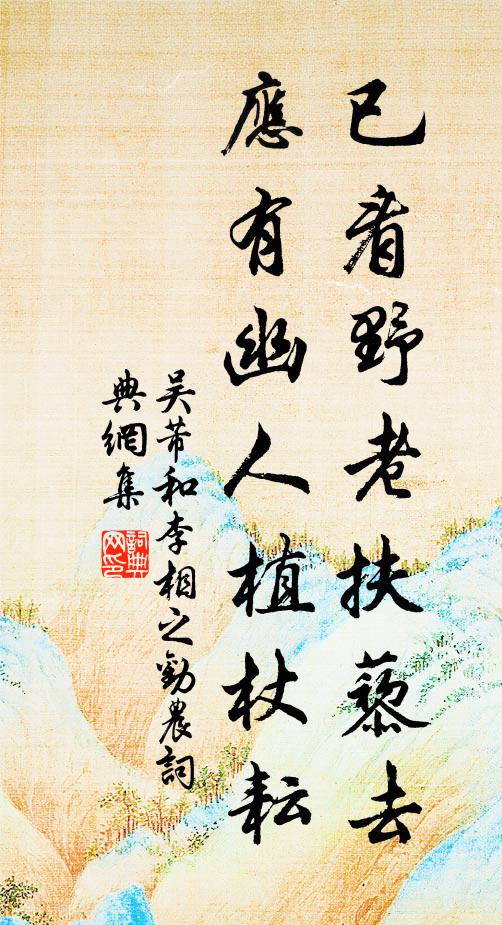 已看野老扶藜去
應有幽人植杖耘
吴芾和李相之勸農詞
典網集
詞典网印